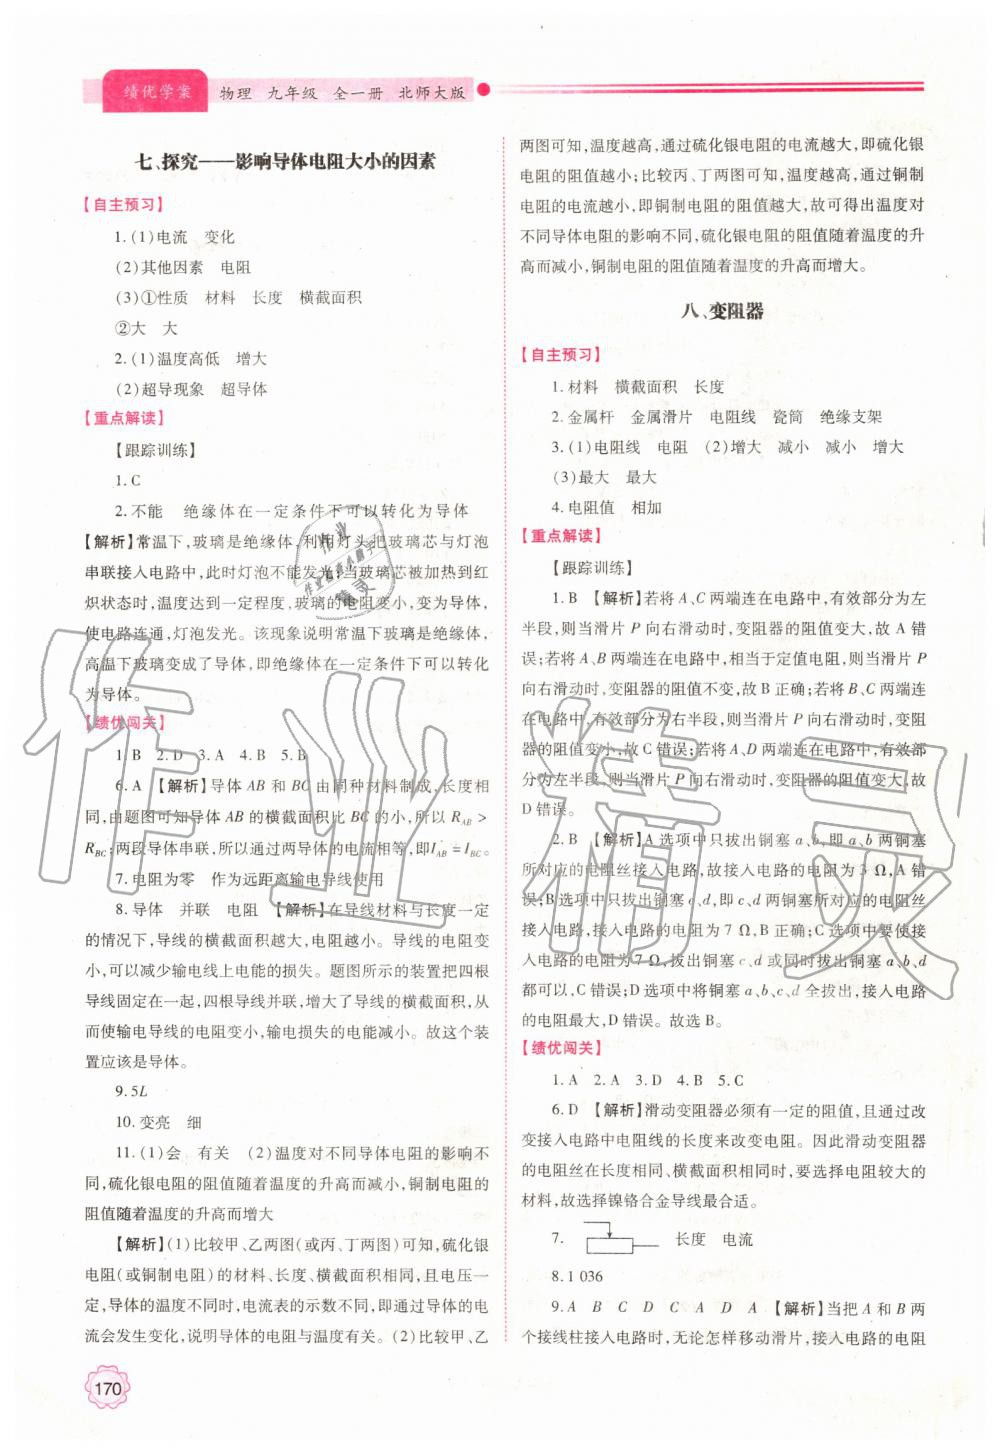 绩优学案 物理 九年级 全一册 北师大版
七、探究——影响导体电阻大小的因素
【自主预习】
1.(1)电流 变化
(2)其他因素 电阻
(3)①性质 材料 长度 横截面积
②大 大
2.(1)温度高低 增大
(2)超导现象 超导体
【重点解读】
【跟踪训练】
1.C
2.不能 绝缘体在一定条件下可以转化为导体
【解析】常温下,玻璃是绝缘体,利用灯头把玻璃芯与灯泡
串联接入电路中,此时灯泡不能发光;当玻璃芯被加热到红
炽状态时,温度达到一定程度,玻璃的电阻变小,变为导体,
使电路连通,灯泡发光。该现象说明常温下玻璃是绝缘体,
高温下玻璃变成了导体,即绝缘体在一定条件下可以转化
为导体。
【绩优闯关】
1.B 2.D 3.A 4.B 5.B
6.A 【解析】导体 AB 和 BC 由同种材料制成,长度相
同,由题图可知导体 AB 的横截面积比 BC 的小,所以 R_AB >
R_BC;两段导体串联,所以通过两导体的电流相等,即I_AB = I_BC。
7.电阻为零 作为远距离输电导线使用
8.导体 并联 电阻 【解析】在导线材料与长度一定
的情况下,导线的横截面积越大,电阻越小。导线的电阻变
小,可以减少输电线上电能的损失。题图所示的装置把四根
导线固定在一起,四根导线并联,增大了导线的横截面积,从
而使输电导线的电阻变小,输电损失的电能减小。故这个装
置应该是导体。
9.5L
10.变亮 细
11.(1)会 有关 (2)温度对不同导体电阻的影响不
同,硫化银电阻的阻值随着温度的升高而减小,铜制电阻的
阻值随着温度的升高而增大
【解析】(1)比较甲、乙两图(或丙、丁两图)可知,硫化银
电阻(或铜制电阻)的材料、长度、横截面积相同,且电压一
定,导体的温度不同时,电流表的示数不同,即通过导体的电
流会发生变化,说明导体的电阻与温度有关。(2)比较甲、乙
两图可知,温度越高,通过硫化银电阻的电流越大,即硫化银
电阻的阻值越小;比较丙、丁两图可知,温度越高,通过铜制
电阻的电流越小,即铜制电阻的阻值越大,故可得出温度对
不同导体电阻的影响不同,硫化银电阻的阻值随着温度的升
高而减小,铜制电阻的阻值随着温度的升高而增大。
八、变阻器
【自主预习】
1.材料 横截面积 长度
2.金属杆 金属滑片 电阻线 瓷筒 绝缘支架
3.(1)电阻线 电阻 (2)增大 减小 减小 增大
(3)最大 最大
4.电阻值 相加
【重点解读】
【跟踪训练】
1.B 【解析】若将 A、C 两端连在电路中,有效部分为左
半段,则当滑片 P 向右滑动时,变阻器的阻值变大,故 A 错
误;若将 A、B 两端连在电路中,相当于定值电阻,则当滑片 P
向右滑动时,变阻器的阻值不变,故 B 正确;若将 B、C 两端连
在电路中,有效部分为右半段,则当滑片 P 向右滑动时,变阻
器的阻值变小,故 C 错误;若将 A、D 两端连在电路中,有效部
分为左半段,则当滑片 P 向右滑动时,变阻器的阻值变大,故
D 错误。
2.B 【解析】A 选项中只拔出铜塞 a、b,即 a、b 两铜塞
所对应的电阻丝接入电路,故接入电路的电阻为 3 Ω,A 错
误;B 选项中只拔出铜塞 c、d,即 c、d 两铜塞所对应的电阻丝
接入电路,接入电路的电阻为 7 Ω,B 正确;C 选项中要使接
入电路的电阻为 7 Ω,拔出铜塞 c、d 或同时拔出 a、b、d
都可以,C 错误;D 选项中将铜塞 a、b、c、d 全拔出,接入电路
的电阻最大,D 错误。故选 B。
【绩优闯关】
1.A 2.A 3.D 4.B 5.C
6.D 【解析】滑动变阻器必须有一定的阻值,且通过改
变接入电路中电阻线的长度来改变电阻。因此滑动变阻器
的电阻丝在长度相同、横截面积相同时,要选择电阻较大的
材料,故选择镍铬合金导线最合适。
7. 长度 电流
8.1 036
9.A B C D C A D A 【解析】当把 A 和 B 两
个接线柱接入电路时,无论怎样移动滑片,接入电路的电阻
170
作业精灵